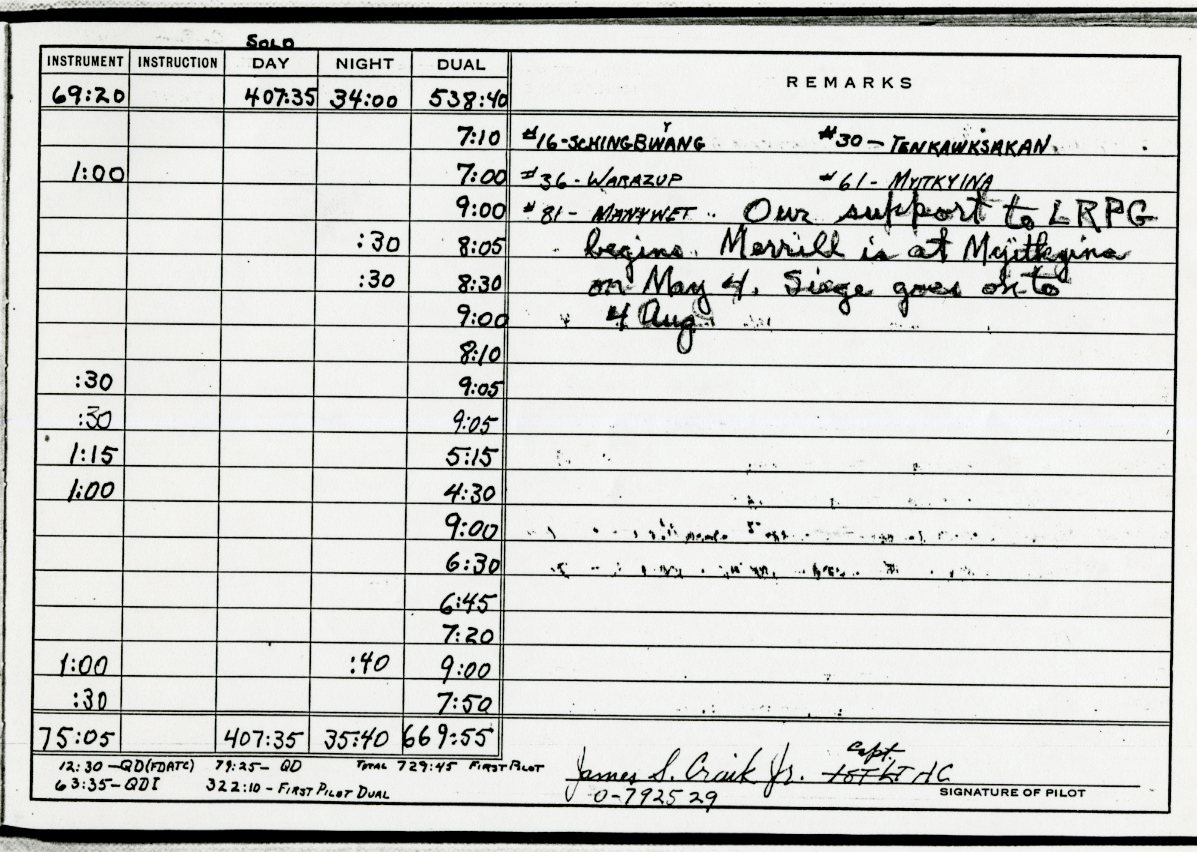 SOLO
INSTRUMENT INSTRUCTION DAY NIGHT DUAL REMARKS
69:20 407:35 34:00 538:40
7:10 #16-SCHINGBWYANG #30-TENKAWKSAKAN.
1:00 7:00 #36-WARAZUP #61-MYITKYINA
9:00 #81-MANYWET Our support to LRPG
:30 8:05 begins. Merrill is at Myitkyina
:30 8:30 on May 4. Siege goes on to
9:00 4 Aug
8:10
:30 9:05
:30 9:05
1:15 5:15
1:00 4:30
9:00
6:30
6:45
7:20
1:00 :40 9:00
:30 7:50
75:05 407:35 35:40 669:55
12:30-QD(FDATC) 79:25-QD TOTAL 729:45 FIRST PILOT
63:35-QDI 322:10-FIRST PILOT DUAL
Capt.
James S. Craik Jr. 1ST LT AC
O-792529 SIGNATURE OF PILOT